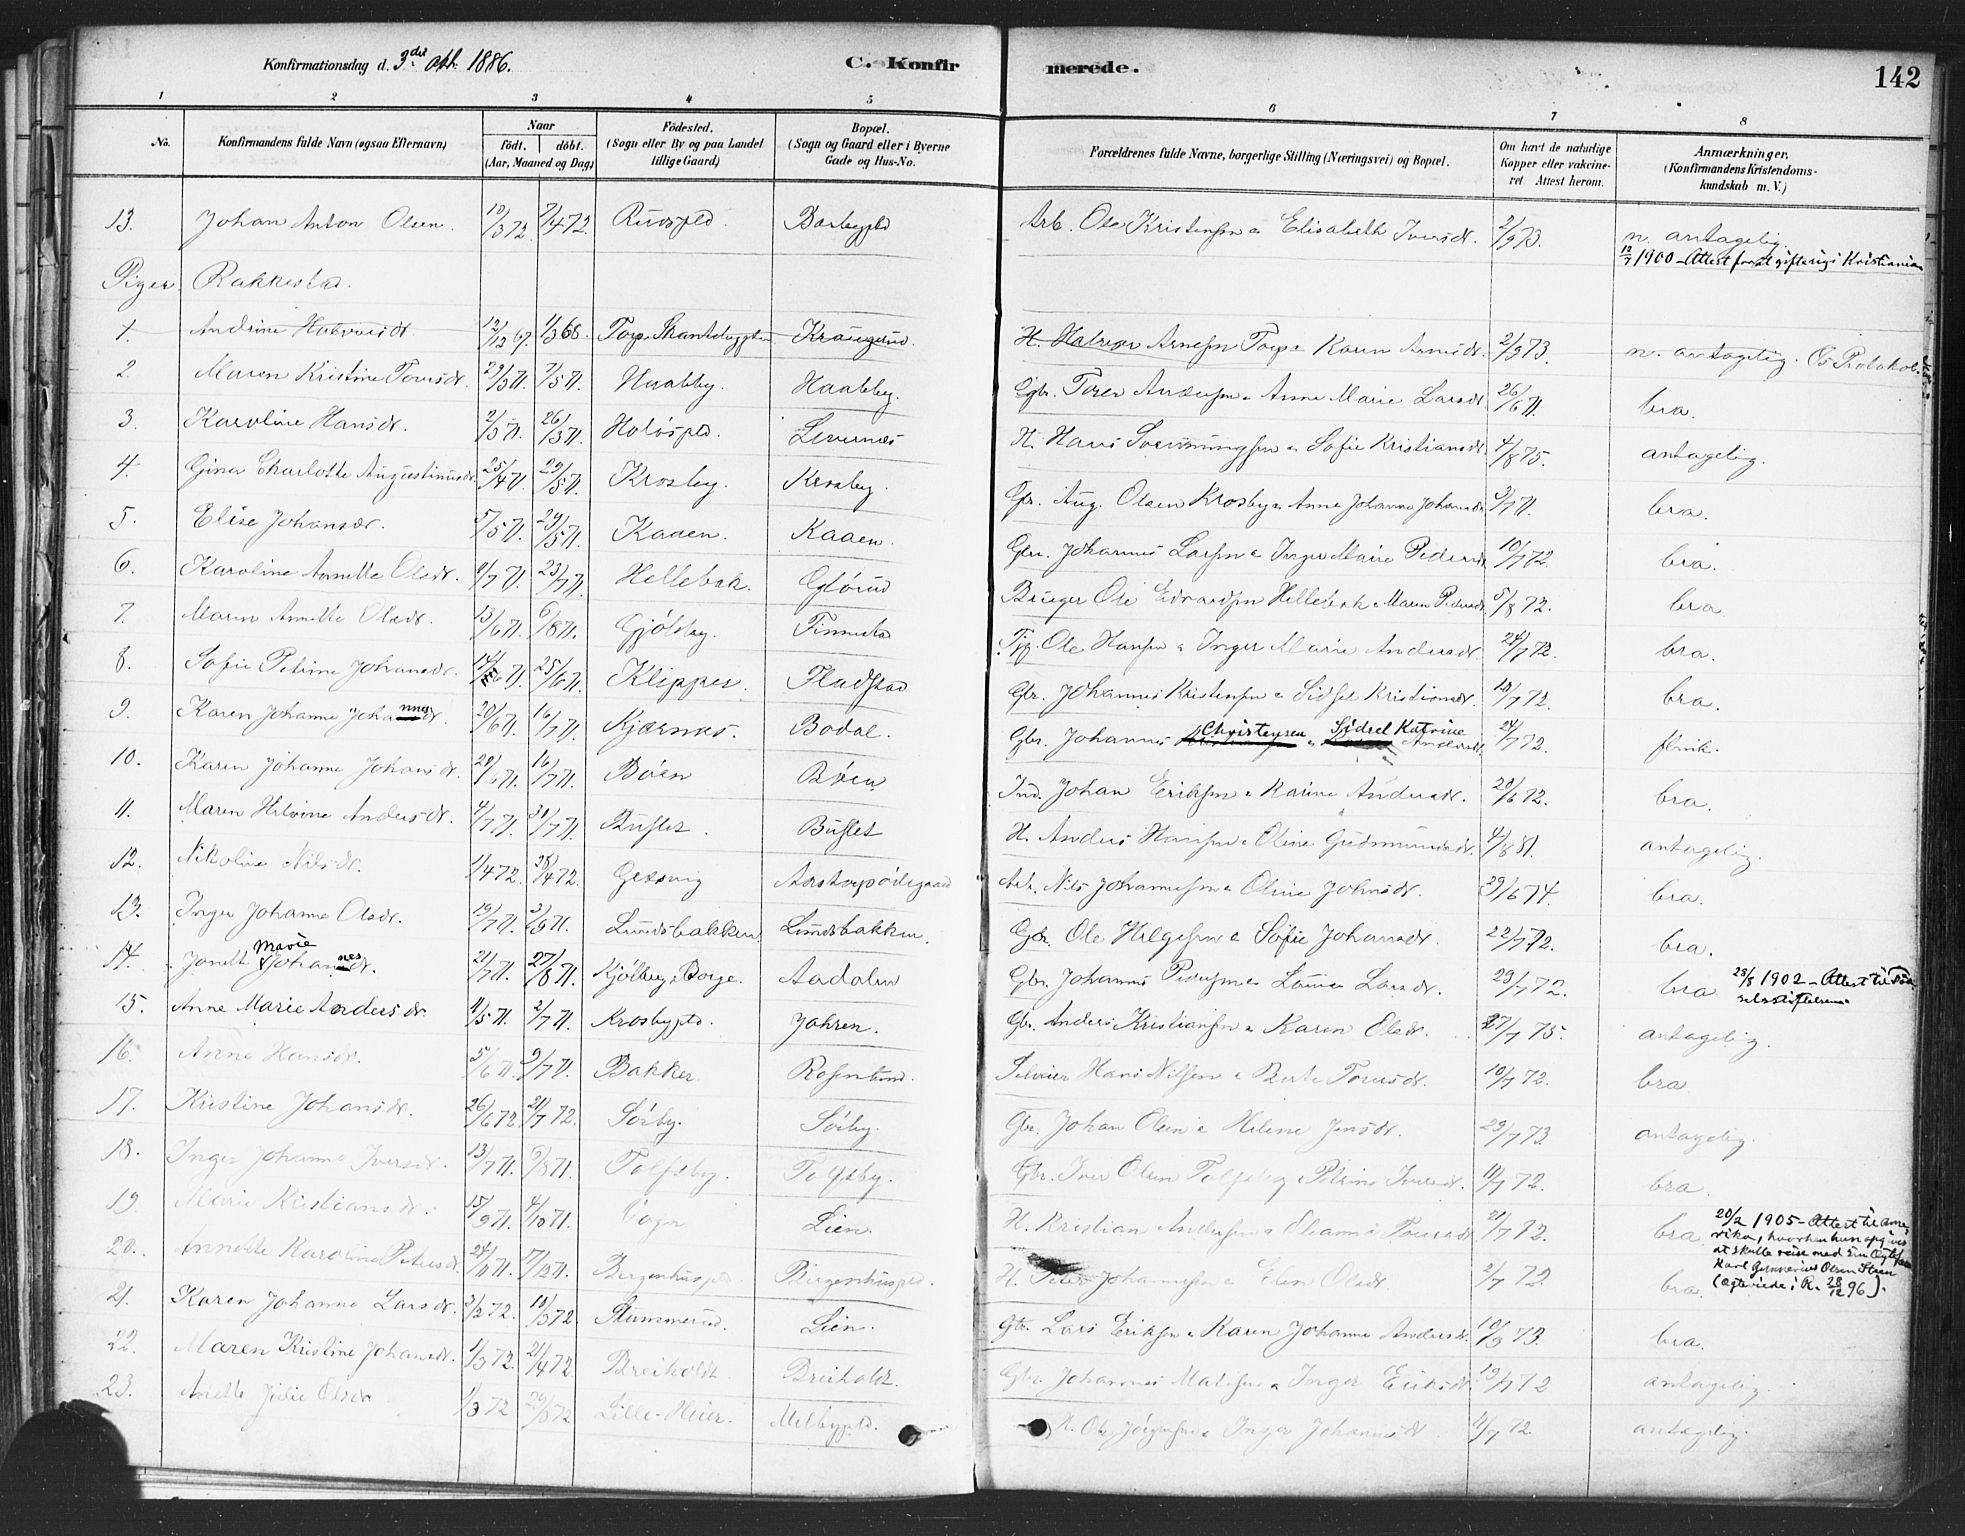 Konfirmationsdag d. 3die Okt. 1886.
C. Konfirmerede.
142
1 2 3 4 5 6 7 8
No.
Konfirmandens fulde Navn (ogsaa Efternavn)
Naar
födt. döbt.
(Aar, Maaned og Dag)
Födested.
(Sogn eller By og paa Landet
tillige Gaard)
Bopæl.
(Sogn og Gaard eller i Byerne
Gade og Hus-No.
Forældrenes fulde Navne, borgerlige Stilling (Næringsvei) og Bopæl.
Om havt de naturlige
Kopper eller vakcine-
ret. Attest herom.
Anmærkninger.
(Konfirmandens Kristendoms-
kundskab m. V.)
13. Johan Anton Olsen 10/3 72 7/4 72 Rudspld. Barbypld Arb. Ole Kristensen & Elisabeth Iversdt. 2/9 73. n. antagelig.
12/7 1900 - Attest for at gifte sig i Kristiania
Piger. Rakkestad.
1 Andrine Halvorsdt 12/12 67. 1/3 68. Torp. Kraugerud. H. Halvor Arnesen Torp & Karen Arnesdt. 2/9 73. n. antagelig. Protokol
2 Maren Kristine Toresdt. 29/3 71. 7/5 71. Haabby. Haabby. Gbr. Tore Andersen & Anne Marie Larsdt 26/6 71. bra.
3. Karoline Hansdt. 2/3 71. 26/3 71. Holöspld. Levernæs H. Hans Svenningsen & Sofie Kristiansdt 4/8 75. antagelig.
4 Gina Charlotte Augustinusdt. 25/4 71. 29/5 71. Krosby. Krosby. Gbr. Aug. Olsen Krosby & Anne Johanne Johansdt 3/7 71. bra.
5. Elise Johansdt. 5/5 71. 29/5 71. Kaaen. Kaaen. Gbr. Johannes Larsen & Inger Marie Pedersdt 10/7 72. bra.
6. Karoline Annette Olsdt. 9/7 71. 23/7 71. Hellebæk. Glörud Bruger Ole Edvardsen Hellebæk & Maren Pedersdt 5/8 72. bra
7. Maren Annette Olsdt. 13/6 71. 6/8 71. Gjölsby. Finnestad Ole Hansen & Inger Marie Andersdt. 24/7 72. bra.
8. Sofie Petrine Johansdt. 14/6 71. 25/6 71. Klipper. Fladstad Gbr. Johannes Kristensen & Sidsel Kristiansdt. 18/7 72. bra.
9. Karen Johanne Johannesdt. 20/6 71. 16/7 71. Kjærnæs. Bodal. Gbr. Johannes Christensen & Sidsel Katrine Andersdt. 24/7 72. flink.
10. Karen Johanne Johansdt. 20/6 71. 16/7 71. Böen Böen Ind. Johan Eriksen & Karine Andersdt. 20/6 72. bra.
11. Maren Helvine Andersdt. 4/7 71. 30/7 71. Buflet. Buflet H. Anders Hansen & Oline Gudmundsdt. 4/8 81. antagelig.
12. Nikoline Nilsdt. 1/4 72. 28/4 72. Gjesvig Aastorpödegaard Arb. Nils Johannesen & Oline Johnsdt. 29/6 74. bra.
13. Inger Johanne Olsdt. 19/7 71. 3/9 71. Lundsbakken Lundsbakken. Gbr. Ole Helgesen & Sofie Johansdt. 22/7 72. bra.
14. Janett Marie Johannesdt. 21/7 71. 27/8 71. Kjölberg, Borge. Aadalen Gbr. Johannes Pedersen & Lovise Larsdt. 23/7 72. bra 28/8 1902 - Attest til
15. Anne Marie Andersdt. 11/5 71. 2/7 71. Krosbypld. Jahren. Gbr. Anders Kristiansen & Karen Olsdt. 27/7 75. antagelig.
16. Anne Hansdt. 5/6 71. 9/7 71. Bakker. Rosenlund. Selveier Hans Nilsen & Berte Toresdt. 10/7 72. bra
17. Kristine Johansdt. 26/6 72 21/7 72. Sörby. Sörby. Gbr. Johan Olsen & Helene Jensdt. 29/7 73. antagelig.
18. Inger Johanne Iversdt. 13/7 71. 9/8 71. Tolfsby. Tolfsby. Gbr. Iver Olsen Tolfsby & Petrine Iversdt. 11/7 72. bra.
19. Marie Kristiansdt. 15/9 71. 4/10 71. Lien. H. Kristian Andersen & Johanne Toresdt 21/7 72. bra
20/2 1905 - Attest til Ame-
rika, hvorhen hun opgives
at skulle reise med sin Ægtefælle
Karl Gunnerius Olsen Steen
(ægteviede i R. 28/12 96).
20. Annette Karoline Petersdt. 24/10 71. 17/12 71. Bergenhuspld. Bergenhuspld. H. Peter Johannesen & Elen Olsdt. 2/7 72. bra.
21. Karen Johanne Larsdt. 3/2 72. 10/3 72. Stummerud. Lien. Gbr. Lars Eriksen & Karen Johanne Andersdt. 10/9 73. bra.
22. Maren Kristine Johansdt. 1/3 72. 21/4 72. Breiholdt Breiholdt. Gbr. Johannes Matisen & Inger Eriksdt. 19/7 72 antagelig.
23. Anette Julie Olsdt 1/3 72 29/3 72 Lille-Heier. Melbypld. H. Ole Jörgensen & Inger Johannesdt 11/7 72. antagelig.